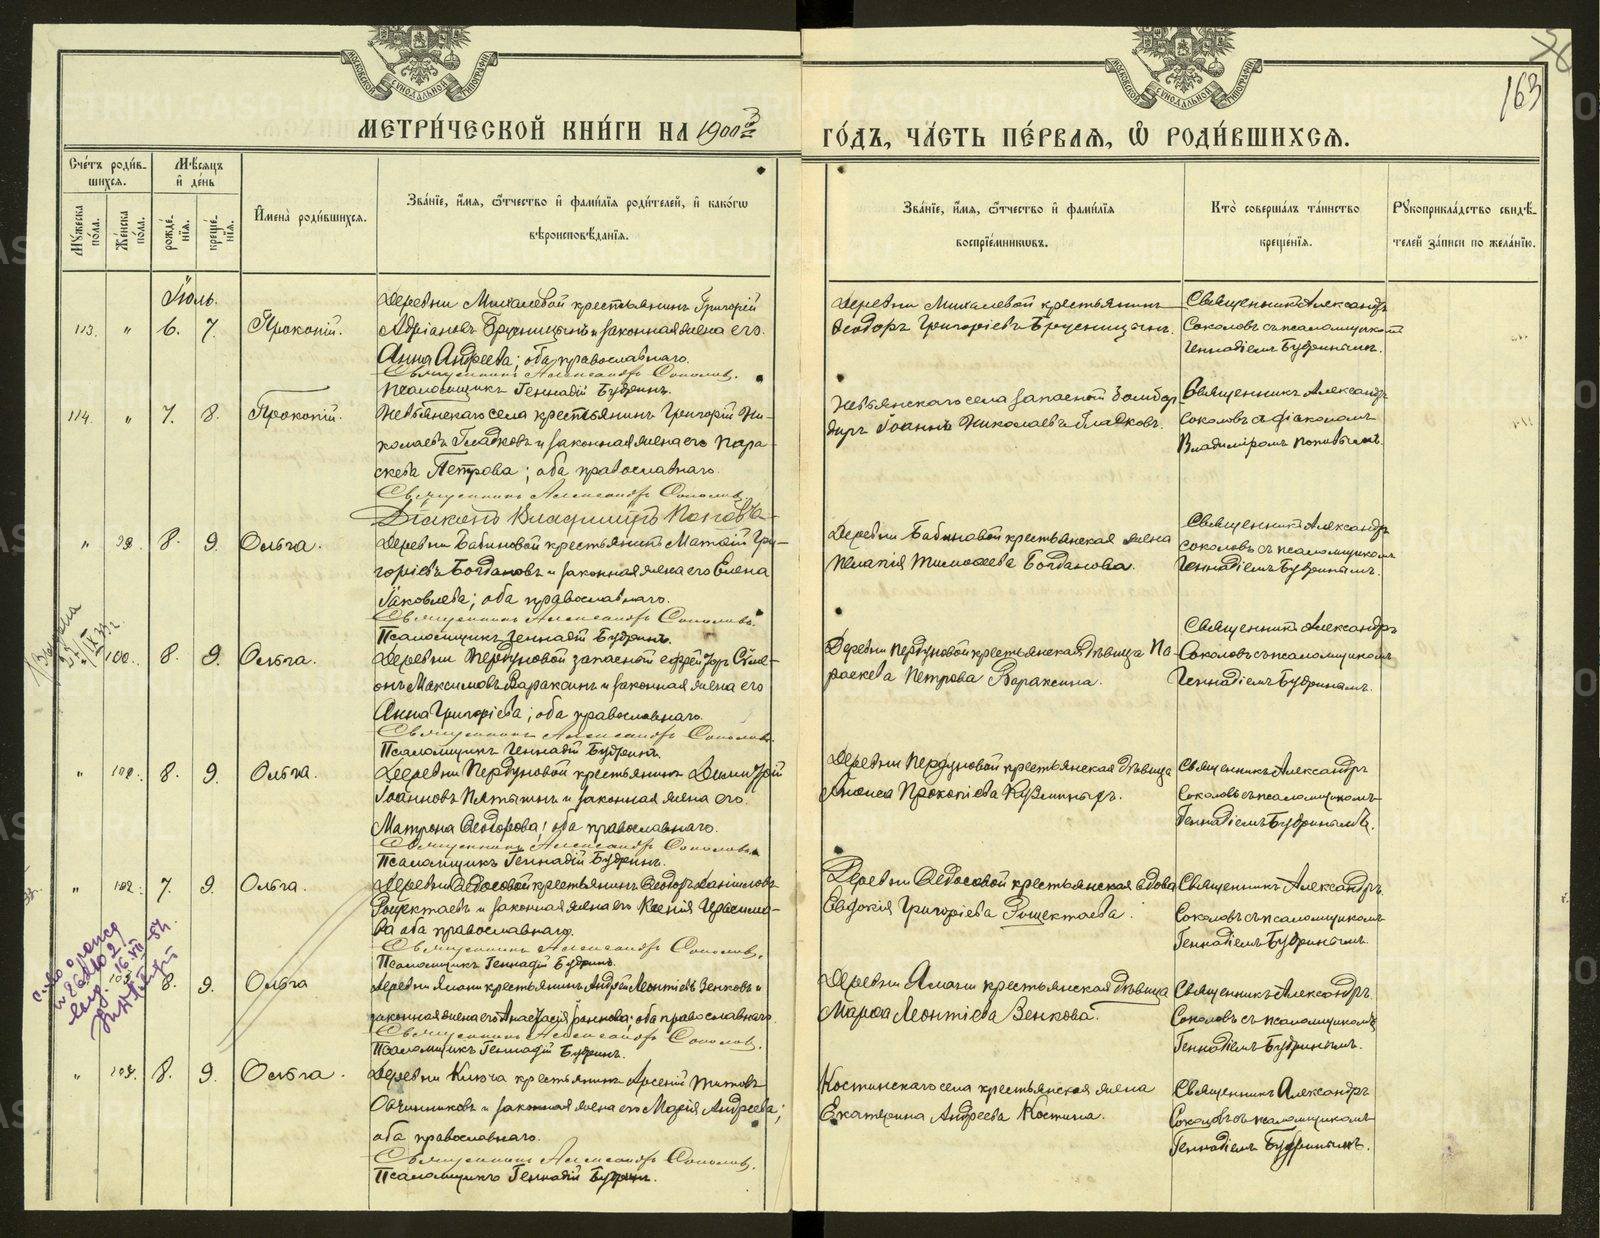 МЕТРИ́ЧЕСКОЙ КНИ́ГИ НА 1900й
ГО́ДЪ, ЧА́СТЬ ПЕ́РВАЯ, Ѡ҆ РОДИ́ВШИХСЯ.
МОСКОВСКОЙ СѴНОДАЛЬНОЙ ТИПОГРАФІИ
МОСКОВСКОЙ СѴНОДАЛЬНОЙ ТИПОГРАФІИ
163
Сче́тъ роди́в-
шихся.
Мѣ́сяцъ
и҆ де́нь
Мꙋ́жеска по́ла.
Же́нска по́ла.
рожде́-
нїя.
креще́-
нїя.
И҆мена̀ роди́вшихся.
Зва́нїе, и҆́мя, ѻ҆́тчество и҆ фами́лїя роди́телей, и҆ како́гѡ
вѣроисповѣ́данїя.
Зва́нїе, и҆́мя, ѻ҆́тчество и҆ фами́лїя
воспрїе́мникѡвъ.
Кто̀ соверша́лъ та́инство
креще́нїя.
Рꙋкоприкла́дство свидѣ́-
телей за́писи по жела́нїю.
Іюль.
113. " 6. 7. Прокопій.
Деревни Михалевой крестьянинъ Григорій
Адріановъ Брусницынъ и законная жена его
Анна Андреева; оба православнаго.
Священникъ Александръ Соколовъ.
Псаломщикъ Геннадій Будринъ.
Деревни Михалевой крестьянинъ
Ѳеодоръ Григоріевъ Брусницынъ.
Священникъ Александръ
Соколовъ съ псаломщикомъ
Геннадіемъ Будринымъ.
114. " 7. 8. Прокопій.
Невьянскаго села крестьянинъ Григорій Ни-
колаевъ Гладковъ и законная жена его Пара-
скева Петрова; оба православнаго.
Священникъ Александръ Соколовъ.
Діаконъ Владиміръ Поповъ
Невьянскаго села запасный бомбар-
диръ Іоаннъ Николаевъ Гладковъ.
Священникъ Александръ
Соколовъ съ діакономъ
Владиміромъ Поповымъ.
" 99. 8. 9. Ольга.
Деревни Бабиновой крестьянинъ Матѳій Гри-
горіевъ Богдановъ и законная жена его Елена
Іаковлева; оба православнаго.
Священникъ Александръ Соколовъ.
Псаломщикъ Геннадій Будринъ.
Деревни Бабиновой крестьянская жена
Пелагія Тимоѳеева Богданова.
Священникъ Александръ
Соколовъ съ псаломщикомъ
Геннадіемъ Будринымъ.
" 100. 8. 9. Ольга.
Деревни Пердуновой запасный ефрейторъ Сѵме-
онъ Максимовъ Вараксинъ и законная жена его
Анна Григоріева; оба православнаго.
Священникъ Александръ Соколовъ.
Псаломщикъ Геннадій Будринъ.
Деревни Пердуновой крестьянская дѣвица Па-
раскева Петрова Вараксина.
Священникъ Александръ
Соколовъ съ псаломщикомъ
Геннадіемъ Будринымъ.
" 101. 8. 9. Ольга.
Деревни Пердуновой крестьянинъ Димитрій
Іоанновъ Пятыгинъ и законная жена его
Матрона Ѳеодорова; оба православнаго.
Священникъ Александръ Соколовъ.
Псаломщикъ Геннадій Будринъ.
Деревни Пердуновой крестьянская дѣвица
Анѳиса Прокопіева Кузминыхъ.
Священникъ Александръ
Соколовъ съ псаломщикомъ
Геннадіемъ Будринымъ.
" 102. 7. 9. Ольга.
Деревни Ѳедосовой крестьянинъ Ѳеодоръ Даніиловъ
Рощектаевъ и законная жена его Ксенія Герасимо-
ва оба православнаго.
Священникъ Александръ Соколовъ.
Псаломщикъ Геннадій Будринъ.
Деревни Ѳедосовой крестьянская вдова
Евдокія Григоріева Рощектаева.
Священникъ Александръ
Соколовъ съ псаломщикомъ
Геннадіемъ Будринымъ.
103. 8. 9. Ольга
Деревни Ямани крестьянинъ Андрей Леонтіевъ Венковъ и
законная жена его Анастасія Іоаннова; оба православнаго.
Священникъ Александръ Соколовъ.
Псаломщикъ Геннадій Будринъ.
Деревни Ямани крестьянская дѣвица
Марѳа Леонтіева Венкова.
Священникъ Александръ
Соколовъ съ псаломщикомъ
Геннадіемъ Будринымъ.
" 104. 8. 9. Ольга.
Деревни Ключа крестьянинъ Арсеній Титовъ
Овчинниковъ и законная жена его Марія Андреева;
оба православнаго.
Священникъ Александръ Соколовъ.
Псаломщикъ Геннадій Будринъ.
Костинскаго села крестьянская жена
Екатерина Андреева Костина.
Священникъ Александръ
Соколовъ съ псаломщикомъ
Геннадіемъ Будринымъ.